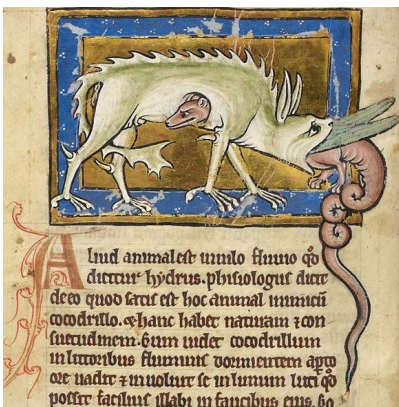 Aliud animal est in nilo fluuio q̄d
dicitur hydrus. phisiologus dicit
de eo quod satis est hoc animal inimicū
cocodrillo. ⁊ hanc habet naturam ⁊ con
suetudinem. Cum uidet cocodrillum
in littoribus fluminis dormientem apto
ore uadit ⁊ inuoluit se in lutum luti q̄
possit facilius illabi in faucibus eius.